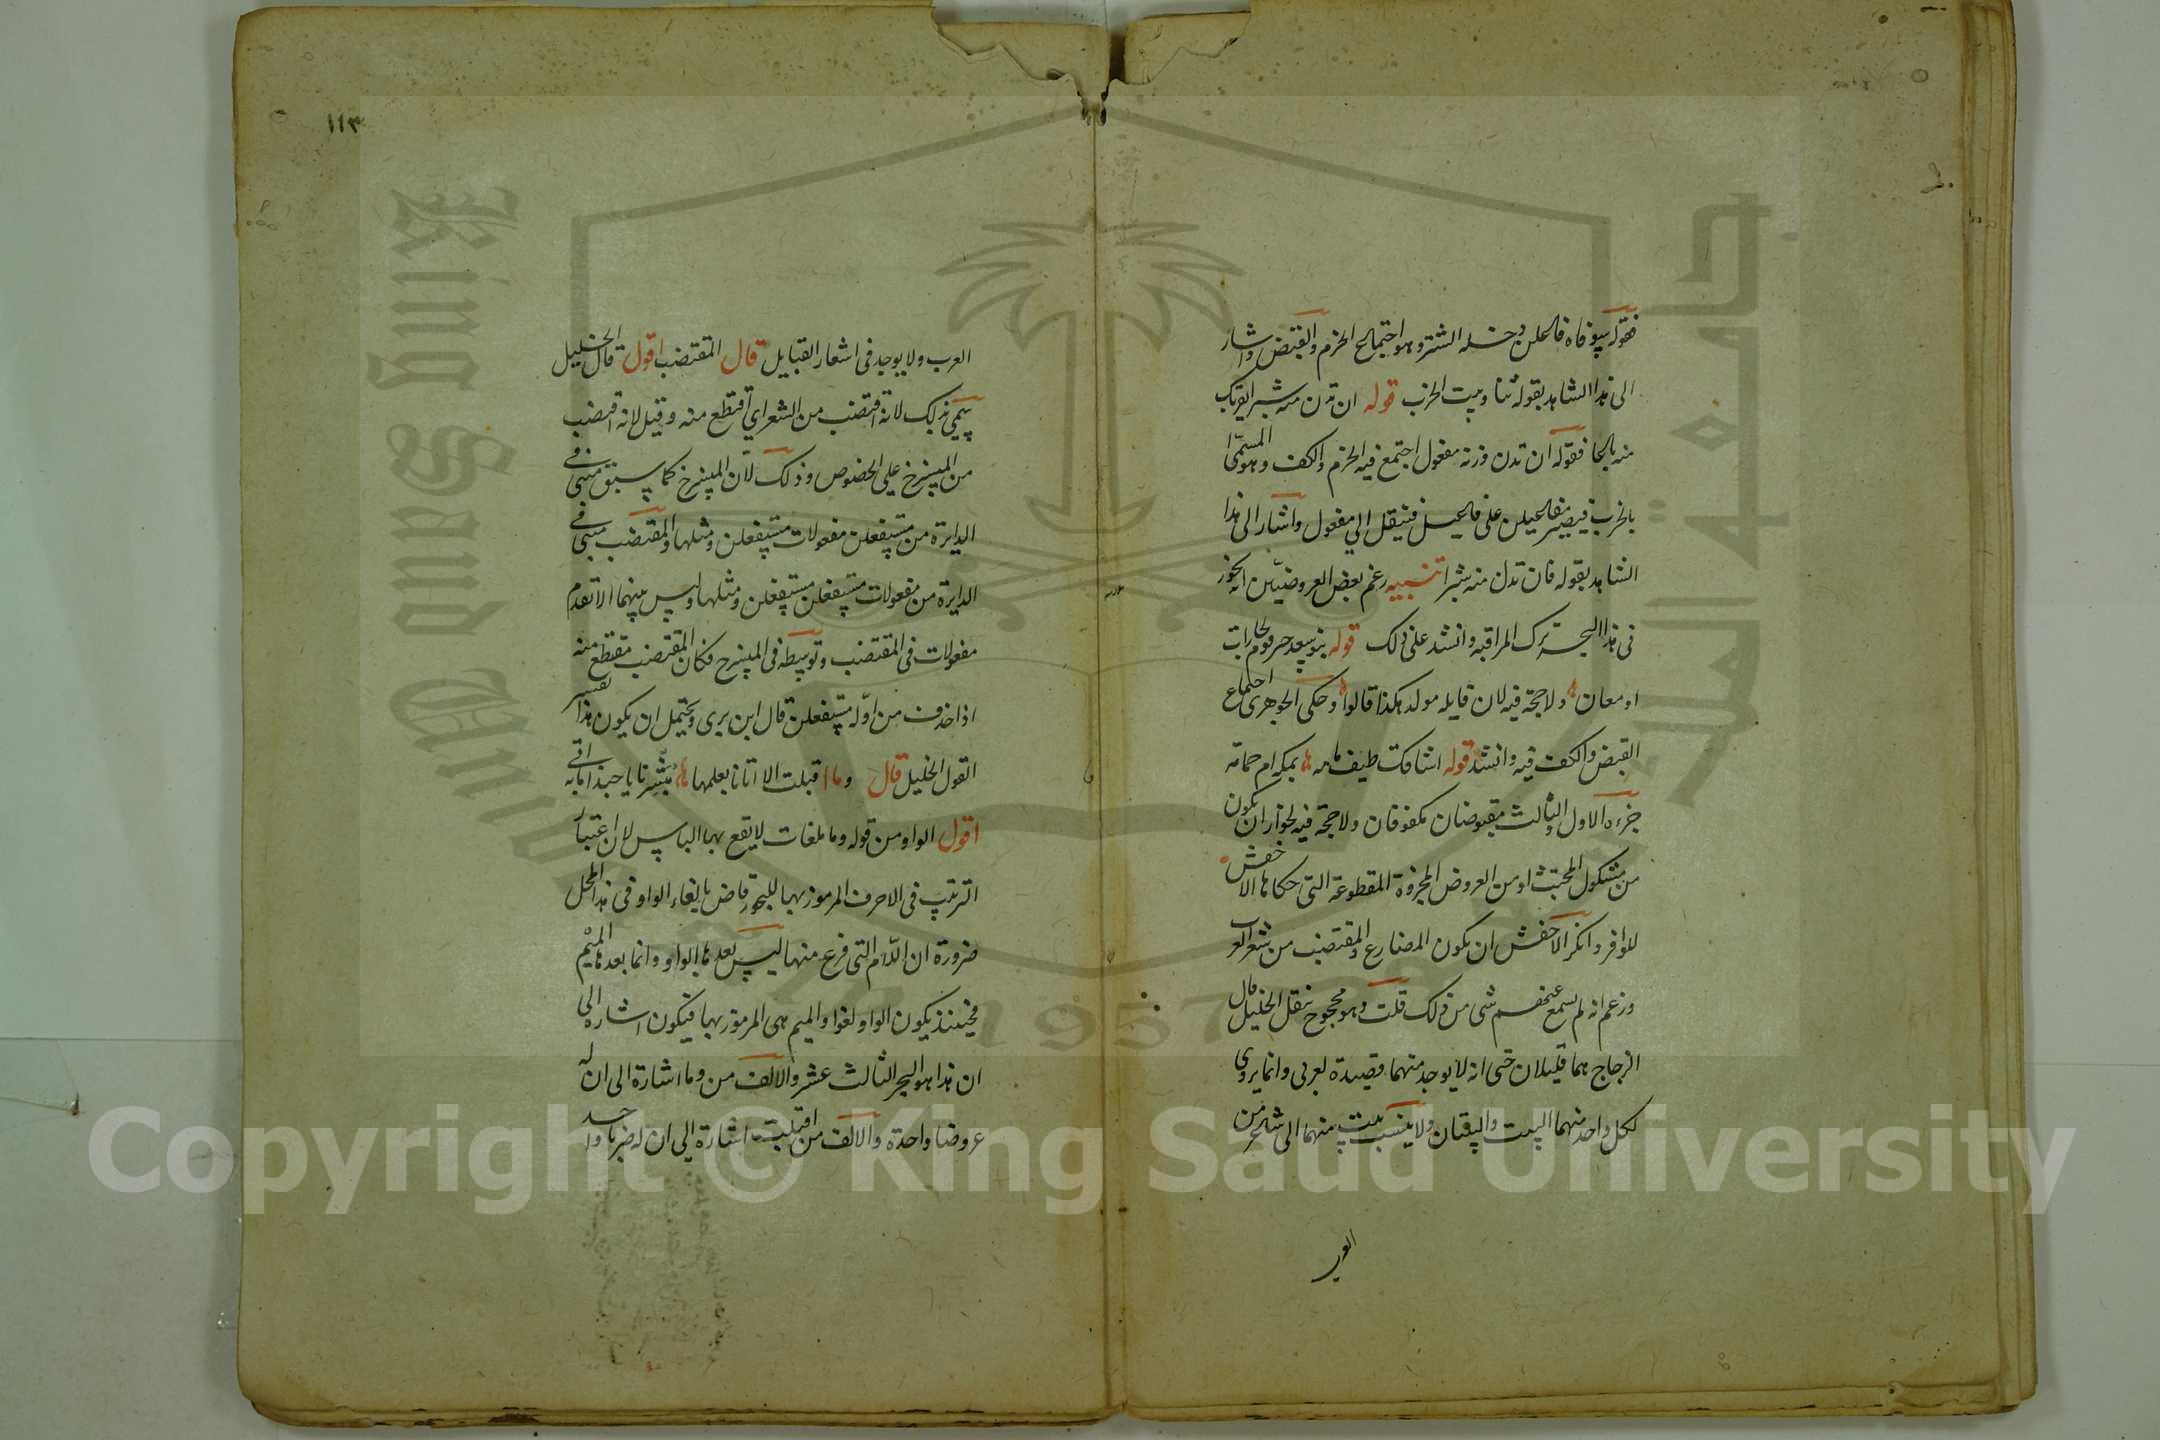 فقوله سوفاه فاعلن دخله الشتر وهو اجتماع الخرم والقبض واشار
الى هذا الشاهد بقوله ثنا وبيت الخرب قوله ان تدن منه شبرا يقربك
منه باعا فقوله ان تدن وزنه مفعول اجتمع فيه الخرم والكف وهو المسمى
بالخرب فيصير مفاعيلن على فاعيل فينقل الى مفعول واشار الى هذا
الشاهد بقوله فان تدن منه شبرا تنبيه زعم بعض العروضيين انه يجوز
فى هذا البحر ترك المراقبة وانشد على ذلك قوله بنو سعد خير قوم لجارات
او معان ولا حجة فيه لان قايله مولد هكذا قالوا وحكى الجوهرى اجتماع
القبض والكف فيه وانشد قوله اشاقك طيف مامه بمكة ام حمامه
جزءه الاول والثالث مقبوضان مكفوفان ولا حجة فيه لجواز ان يكون
من مشكول المجتث او من العروض المجزوة المقطوعة التى حكاها الاخفش
للوافر وانكر الاخفش ان يكون المضارع والمقتضب من شعر العرب
وزعم انه لم يسمع عنهم شى من ذلك قلت وهو محجوج بنقل الخليل قال
الزجاج هما قليلان حتى انه لا يوجد منهما قصيدة لعربى وانما يروى
لكل واحد منهما البيت والبيتان ولا ينسب بيت منهما الى شاعر من
العرب
١١٣
العرب ولا يوجد فى اشعار القبايل قال المقتضب اقول قال الخليل
سمى بذلك لانه اقتضب من الشعر اي اقتطع منه وقيل لانه اقتضب
من المنسرح على الخصوص وذلك لان المنسرح كما سبق مبنى فى
الدايرة من مستفعلن مفعولات مستفعلن ومثلها والمقتضب مبنى فى
الدايرة من مفعولات مستفعلن مستفعلن ومثلها وليس بينهما الا تقدم
مفعولات فى المقتضب وتوسطه فى المنسرح فكان المقتضب مقتطع منه
اذا حذف من اوله مستفعلن قال ابن برى ويحتمل ان يكون هذا تفسير
القول الخليل قال وما اقبلت الا اتانا بعلمها مبشرنا يا حبذا ما به اتى
اقول الواو من قوله وما ملغات لا يقع بها الباس لان اعتبار
الترتيب فى الاحرف المرموز بها للبحور قاض بالغاء الواو فى هذا المحل
ضرورة ان اللام التى فرغ منها ليس بعدها الواو وانما بعدها الميم
فحينئذ يكون الواو لغوا والميم هى المرموز بها فيكون اشاره الى
ان هذا هو البحر الثالث عشر والالف من وما اشارة الى ان له
عروضا واحدة والالف من اقبلت اشارة الى ان له ضربا واحد